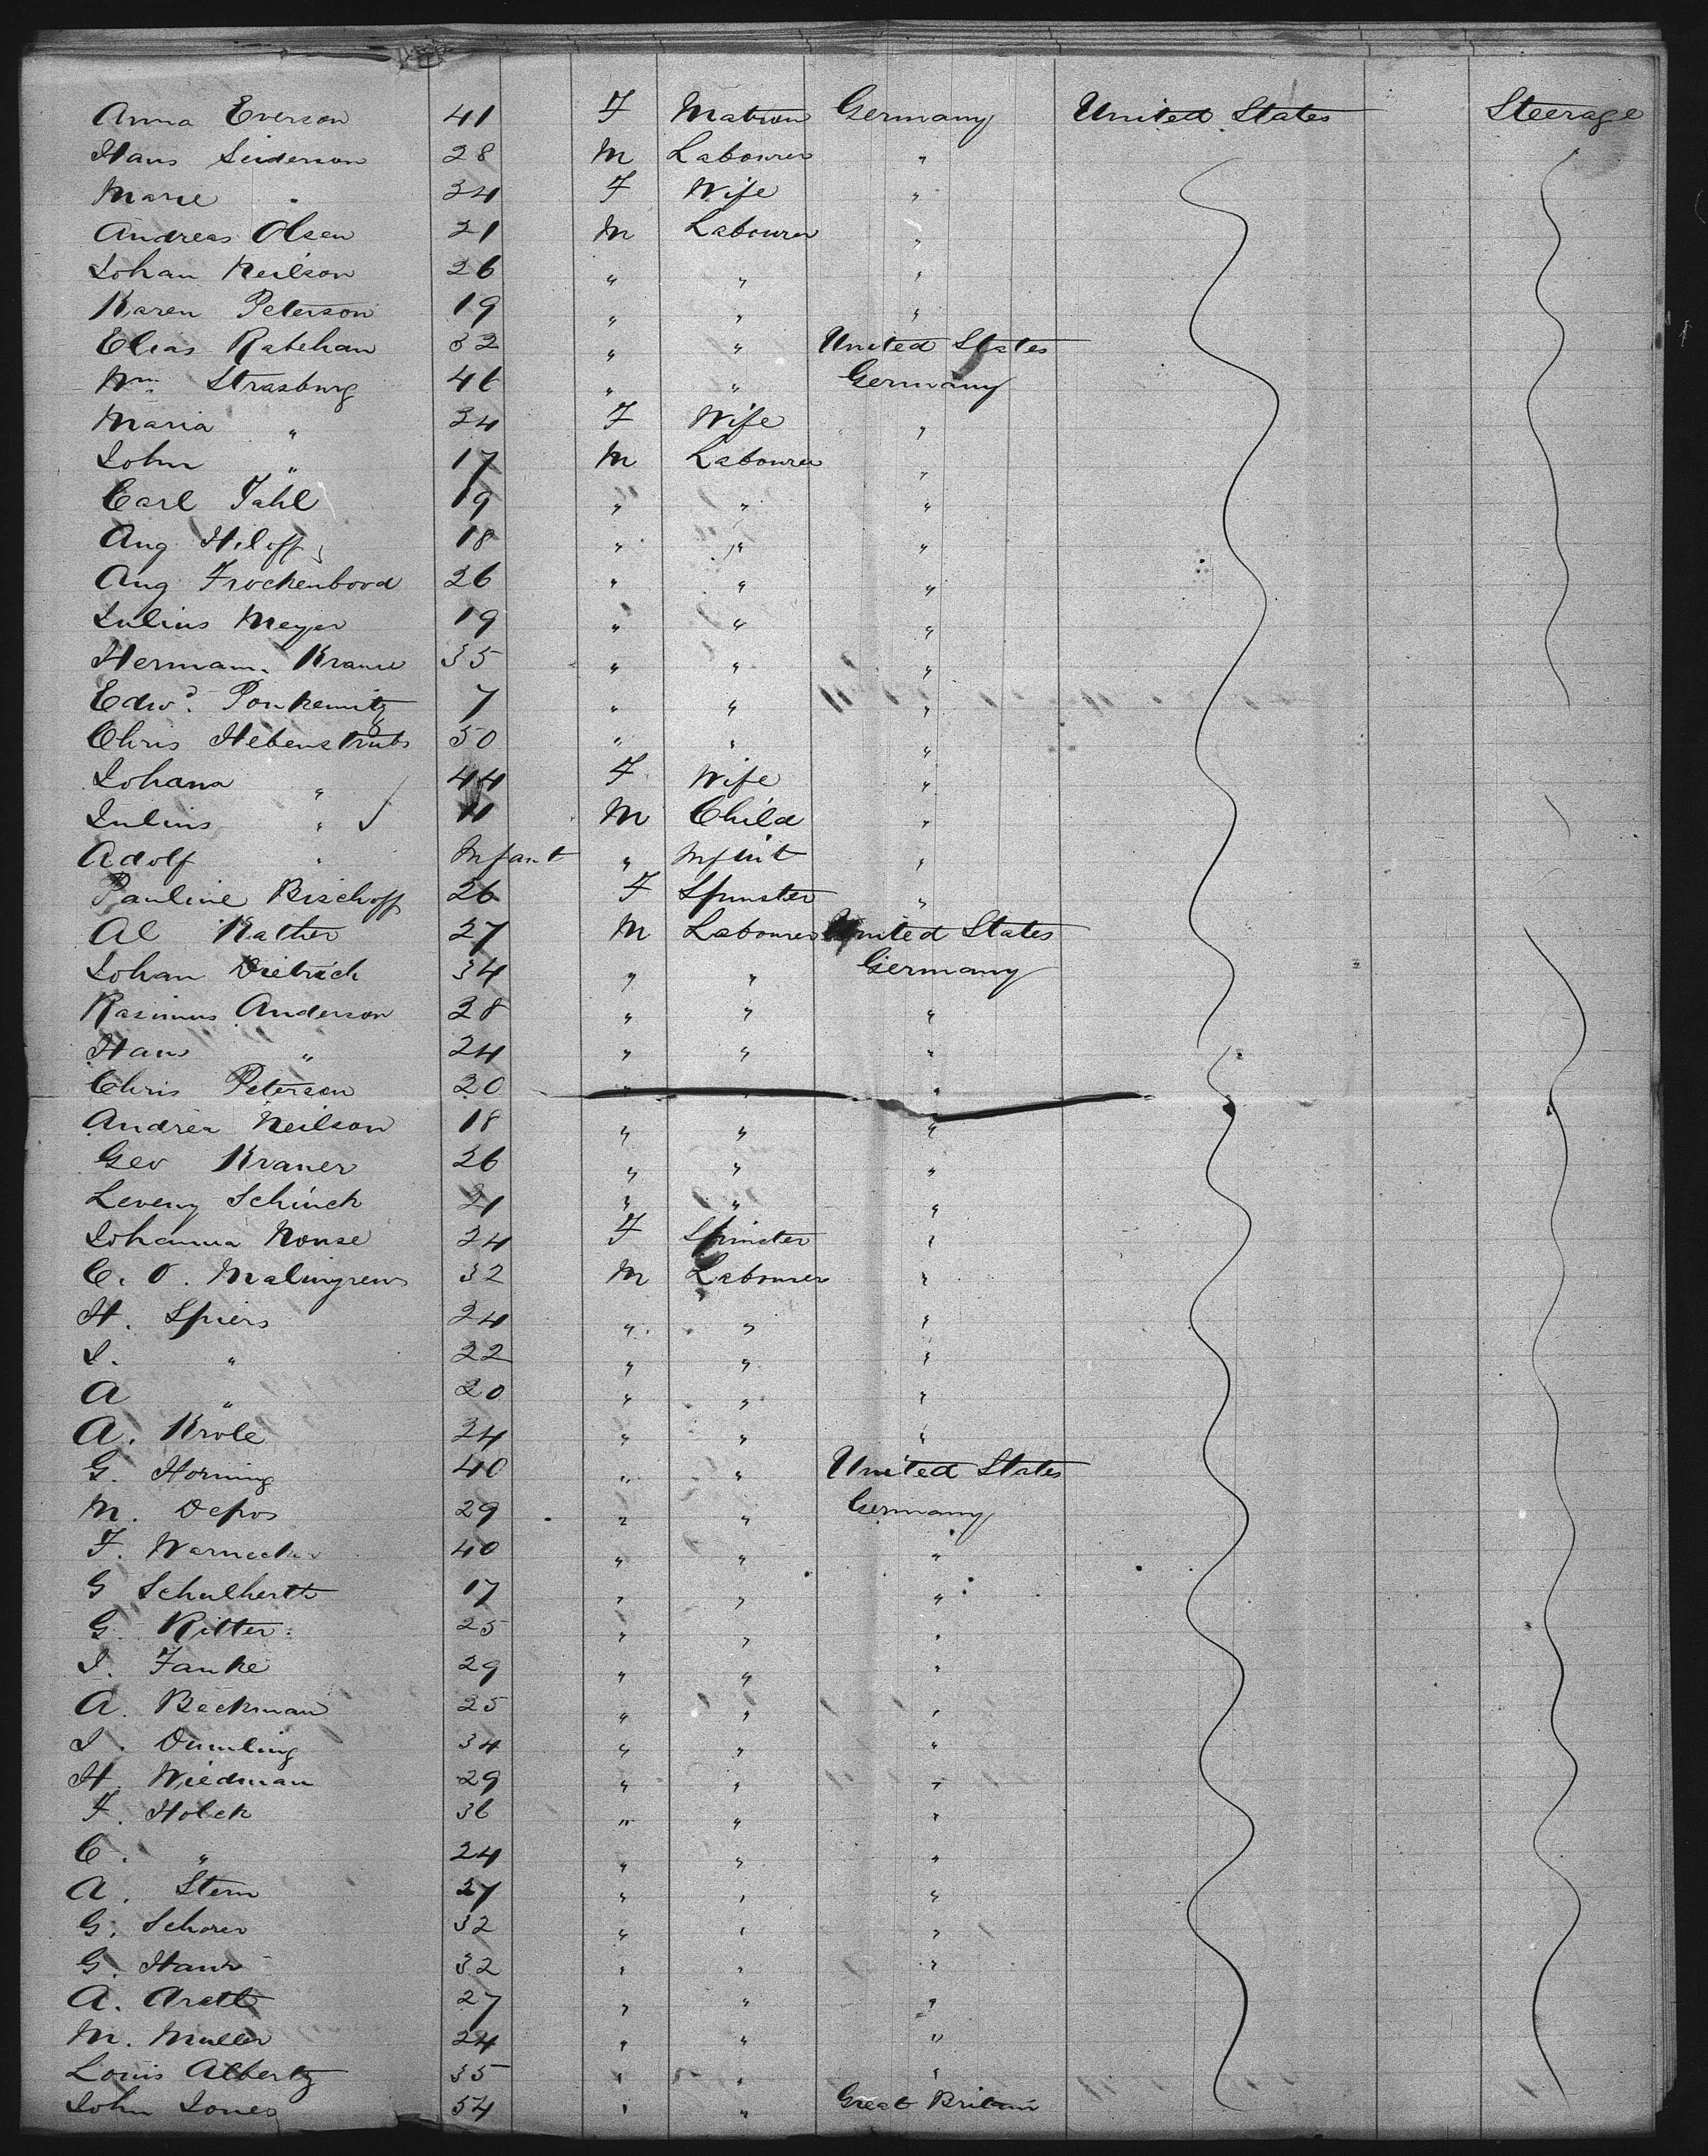 Anna Everson 41 F Matron Germany United States Steerage
Hans Seiderson 28 M Labourer "
Marie " 24 F Wife "
Andreas Olsen 21 M Labourer "
Johan Neilson 26 " " "
Karen Peterson 19 " " "
Elias Rabehan 32 " " United States
Wm Strasburg 46 " " Germany
Maria " 34 F Wife "
John " 17 M Labourer "
Carl Jahl 19 " " "
Aug Hiloff 18 " " "
Aug Frockenbood 26 " " "
Julius Meyer 19 " " "
Hermann Krause 35 " " "
Edwd. Ponkemitz 7 " " "
Chris Hebenstrubs 50 " " "
Johana " 44 F Wife "
Julius " 11 M Child "
Adolf " Infant " Infant "
Pauline Bischoff 26 F Spinster "
Al Kather 27 M Labourer United States
Johan Dietrich 34 " " Germany
Rasimus Anderson 28 " " "
Hans " 24 " " "
Chris Peterson 20 " " "
Andrea Neilson 18 " " "
Geo Kraner 26 " " "
Leveny Schinck 21 " " "
Johanna Nouse 24 F Spinster "
C. O. Malmgren 32 M Labourer "
H. Spiers 24 " " "
J. " 22 " " "
A " 20 " " "
A. Krole 24 " " "
G. Horning 40 " " United States
M. Depos 29 " " Germany
F. Warnecke 40 " " "
G Schulherth 17 " " "
G. Ritter 25 " " "
J. Janke 29 " " "
A. Beckman 25 " " "
J. Dumling 34 " " "
H. Wiedman 29 " " "
F. Holck 36 " " "
C. " 24 " " "
A. Stern 27 " " "
G. Schorer 32 " " "
G. Hawr 32 " " "
A. Aratt 27 " " "
M. Muller 24 " " "
Louis Albertz 35 " " "
John Jones 54 " " Great Britain